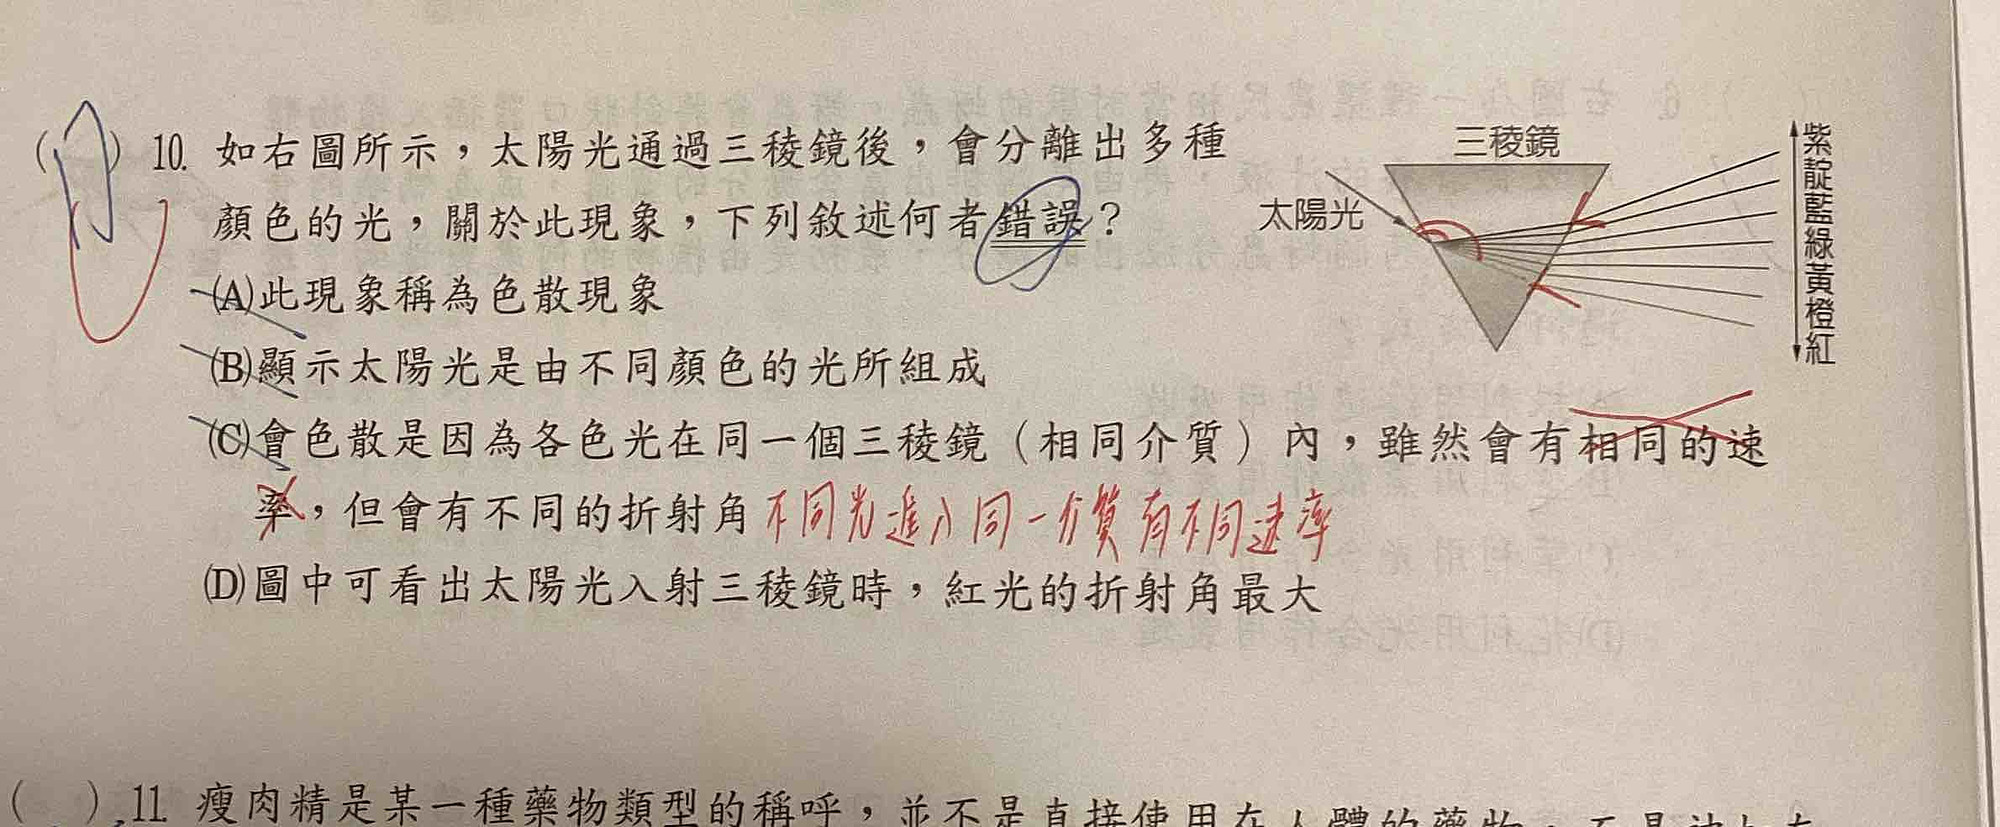 ( ) 10. 如右圖所示,太陽光通過三稜鏡後,會分離出多種
顏色的光,關於此現象,下列敘述何者錯誤?
(A)此現象稱為色散現象
(B)顯示太陽光是由不同顏色的光所組成
(C)會色散是因為各色光在同一個三稜鏡(相同介質)內,雖然會有相同的速
率,但會有不同的折射角 不同光進入同一介質有不同速率
(D)圖中可看出太陽光入射三稜鏡時,紅光的折射角最大
三稜鏡
太陽光
紫靛藍綠黃橙紅
( ) 11. 瘦肉精是某一種藥物類型的稱呼,並不是直接使用在人體的藥物,